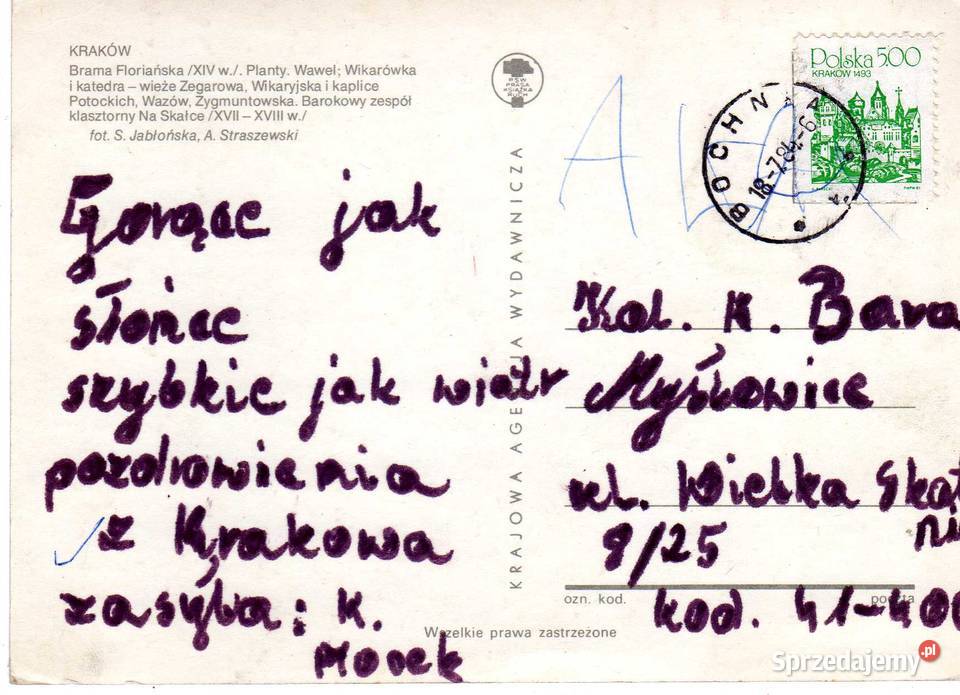 KRAKÓW
Brama Floriańska /XIV w./. Planty. Wawel; Wikarówka
i katedra – wieże Zegarowa, Wikaryjska i kaplice
Potockich, Wazów, Zygmuntowska. Barokowy zespół
klasztorny Na Skałce /XVII – XVIII w./
fot. S. Jabłońska, A. Straszewski
Gorące jak
słońce
szybkie jak wiatr
pozdrowienia
z Krakowa
zasyła: K.
Mocek
PSW
PRASA
KSIĄŻKA
RUCH
KRAJOWA AGENCJA WYDAWNICZA
Polska 5.00
KRAKÓW 1493
BOCHNIA
18-7.84-6
Kol. K. Bara
Mysłowice
ul. Wielka Skot
9/25
kod. 41-400
ozn. kod.
poczta
Wszelkie prawa zastrzeżone
Sprzedajemy.pl